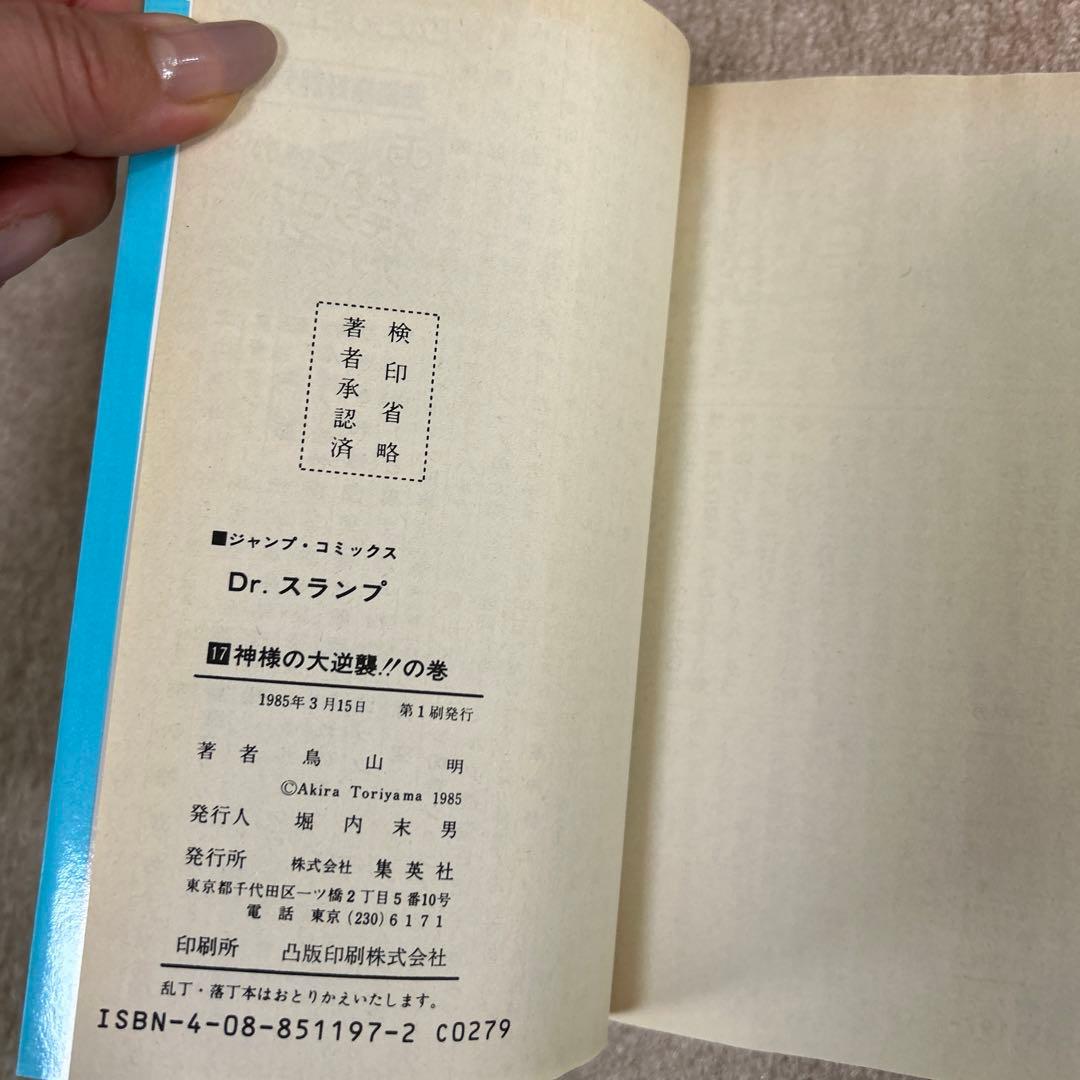 検印省略
著者承認済
■ジャンプ・コミックス
Dr. スランプ
17神様の大逆襲!!の巻
1985年3月15日 第1刷発行
著者 鳥山 明
©Akira Toriyama 1985
発行人 堀内末男
発行所 株式会社 集英社
東京都千代田区一ツ橋2丁目5番10号
電話 東京(230)6171
印刷所 凸版印刷株式会社
乱丁・落丁本はおとりかえいたします。
ISBN-4-08-851197-2 C0279